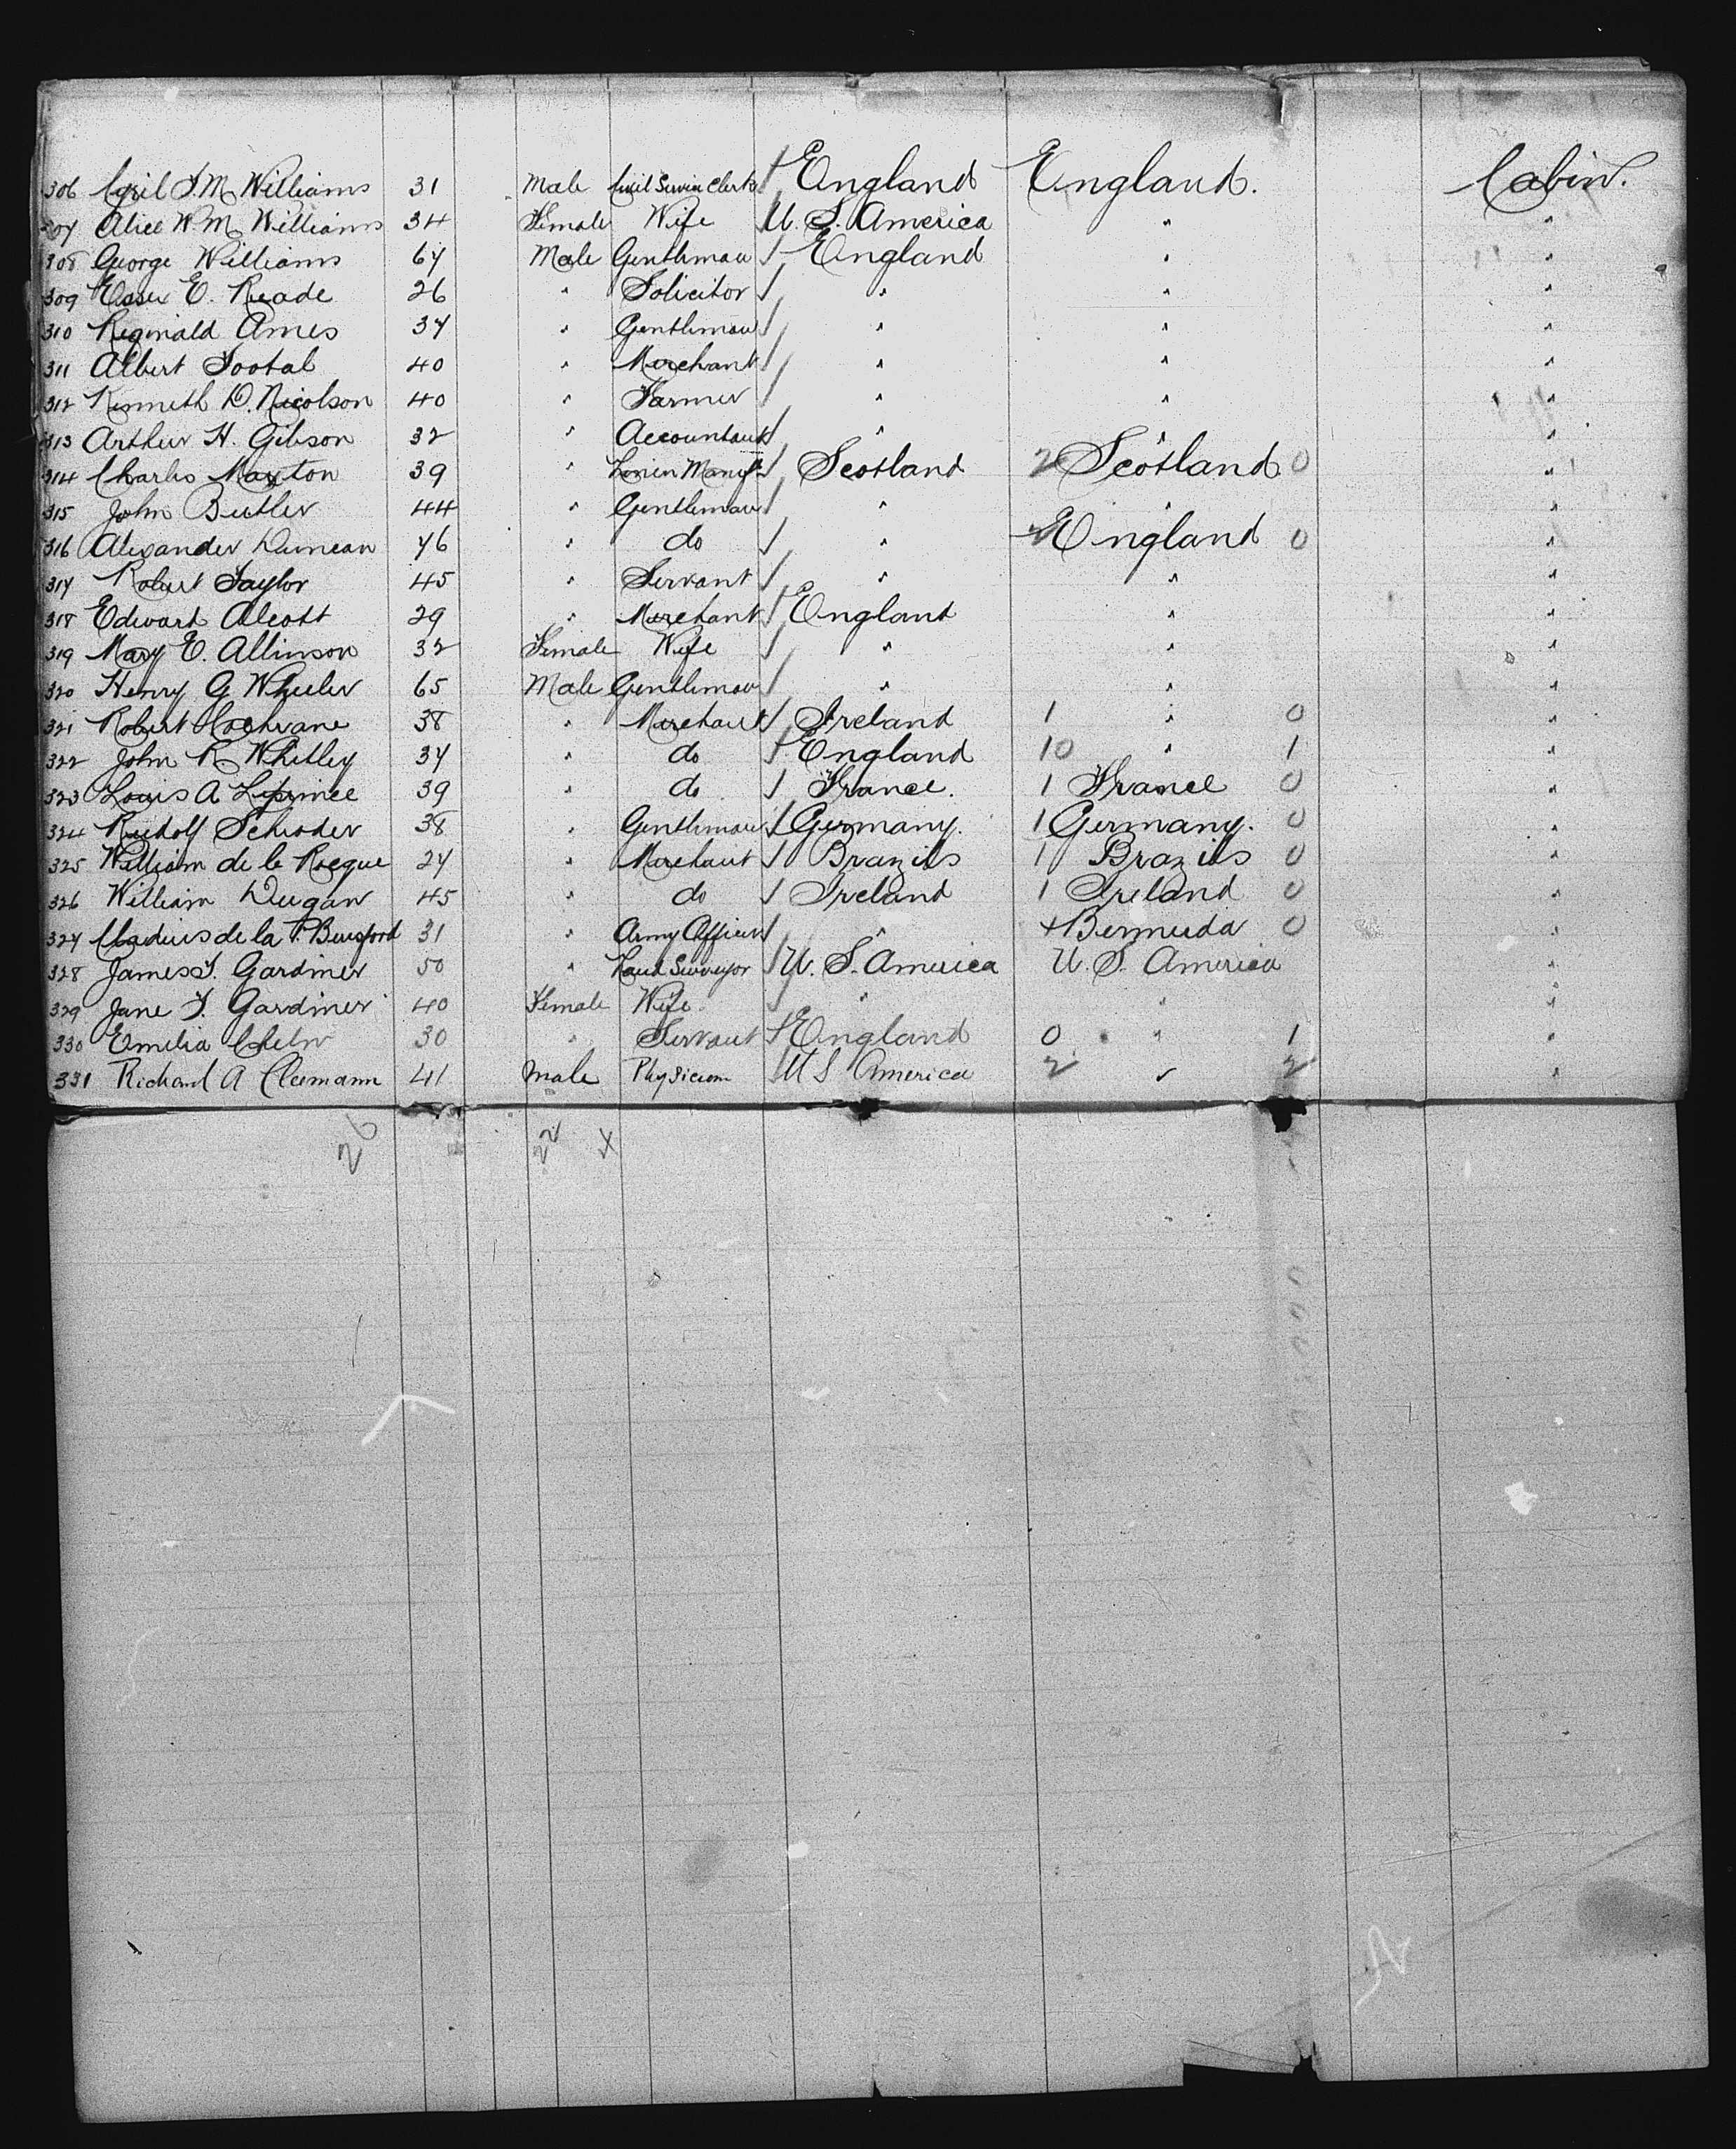 306 Cyril F. M. Williams 31 Male Civil Servin Clerk / England England. Cabin.
307 Alice W. M. Williams 34 Female Wife / U. S. America " "
308 George Williams 67 Male Gentleman / England " "
309 Essex E. Reade 26 " Solicitor / " " "
310 Reginald Ames 37 " Gentleman / " " "
311 Albert Tootal 40 " Merchant / " " "
312 Kenneth D. Nicolson 40 " Farmer / " " "
313 Arthur H. Gibson 32 " Accountant / " " "
314 Charles Maxton 39 " Linen Manuf / Scotland 2 Scotland 0 "
315 John Butler 44 " Gentleman / " " "
316 Alexander Duncan 76 " do / " England 0 "
317 Robert Taylor 45 " Servant / " " "
318 Edward Alcott 29 " Merchant / England " "
319 Mary E. Allinson 32 Female Wife / " " "
320 Henry G Wheeler 65 Male Gentleman / " " "
321 Robert Cochrane 38 " Merchant / Ireland 1 " 0 "
322 John R Whitley 37 " do / England 10 " 1 "
323 Louis A Leprince 39 " do / France. 1 France 0 "
324 Rudolf Schroder 38 " Gentleman / Germany. 1 Germany. 0 "
325 William de le Rocque 27 " Merchant / Brazils 1 Brazils 0 "
326 William Dugan 45 " do / Ireland 1 Ireland 0 "
327 de la P. Beresford 31 " Army Officer / " + Bermuda 0 "
328 James T. Gardiner 50 " Land Surveyor / U. S. America U. S. America "
329 Jane T. Gardiner 40 Female Wife / " " "
330 Emilia 30 " Servant / England 0 " 1 "
331 Richard A Cleemann 41 Male Physician / U S America 2 " 2 "
26 22 4